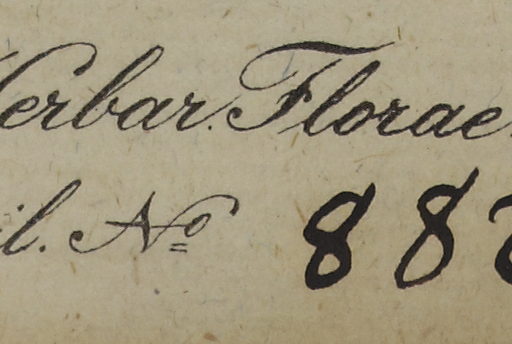 Herbar. Florae
il. No 88